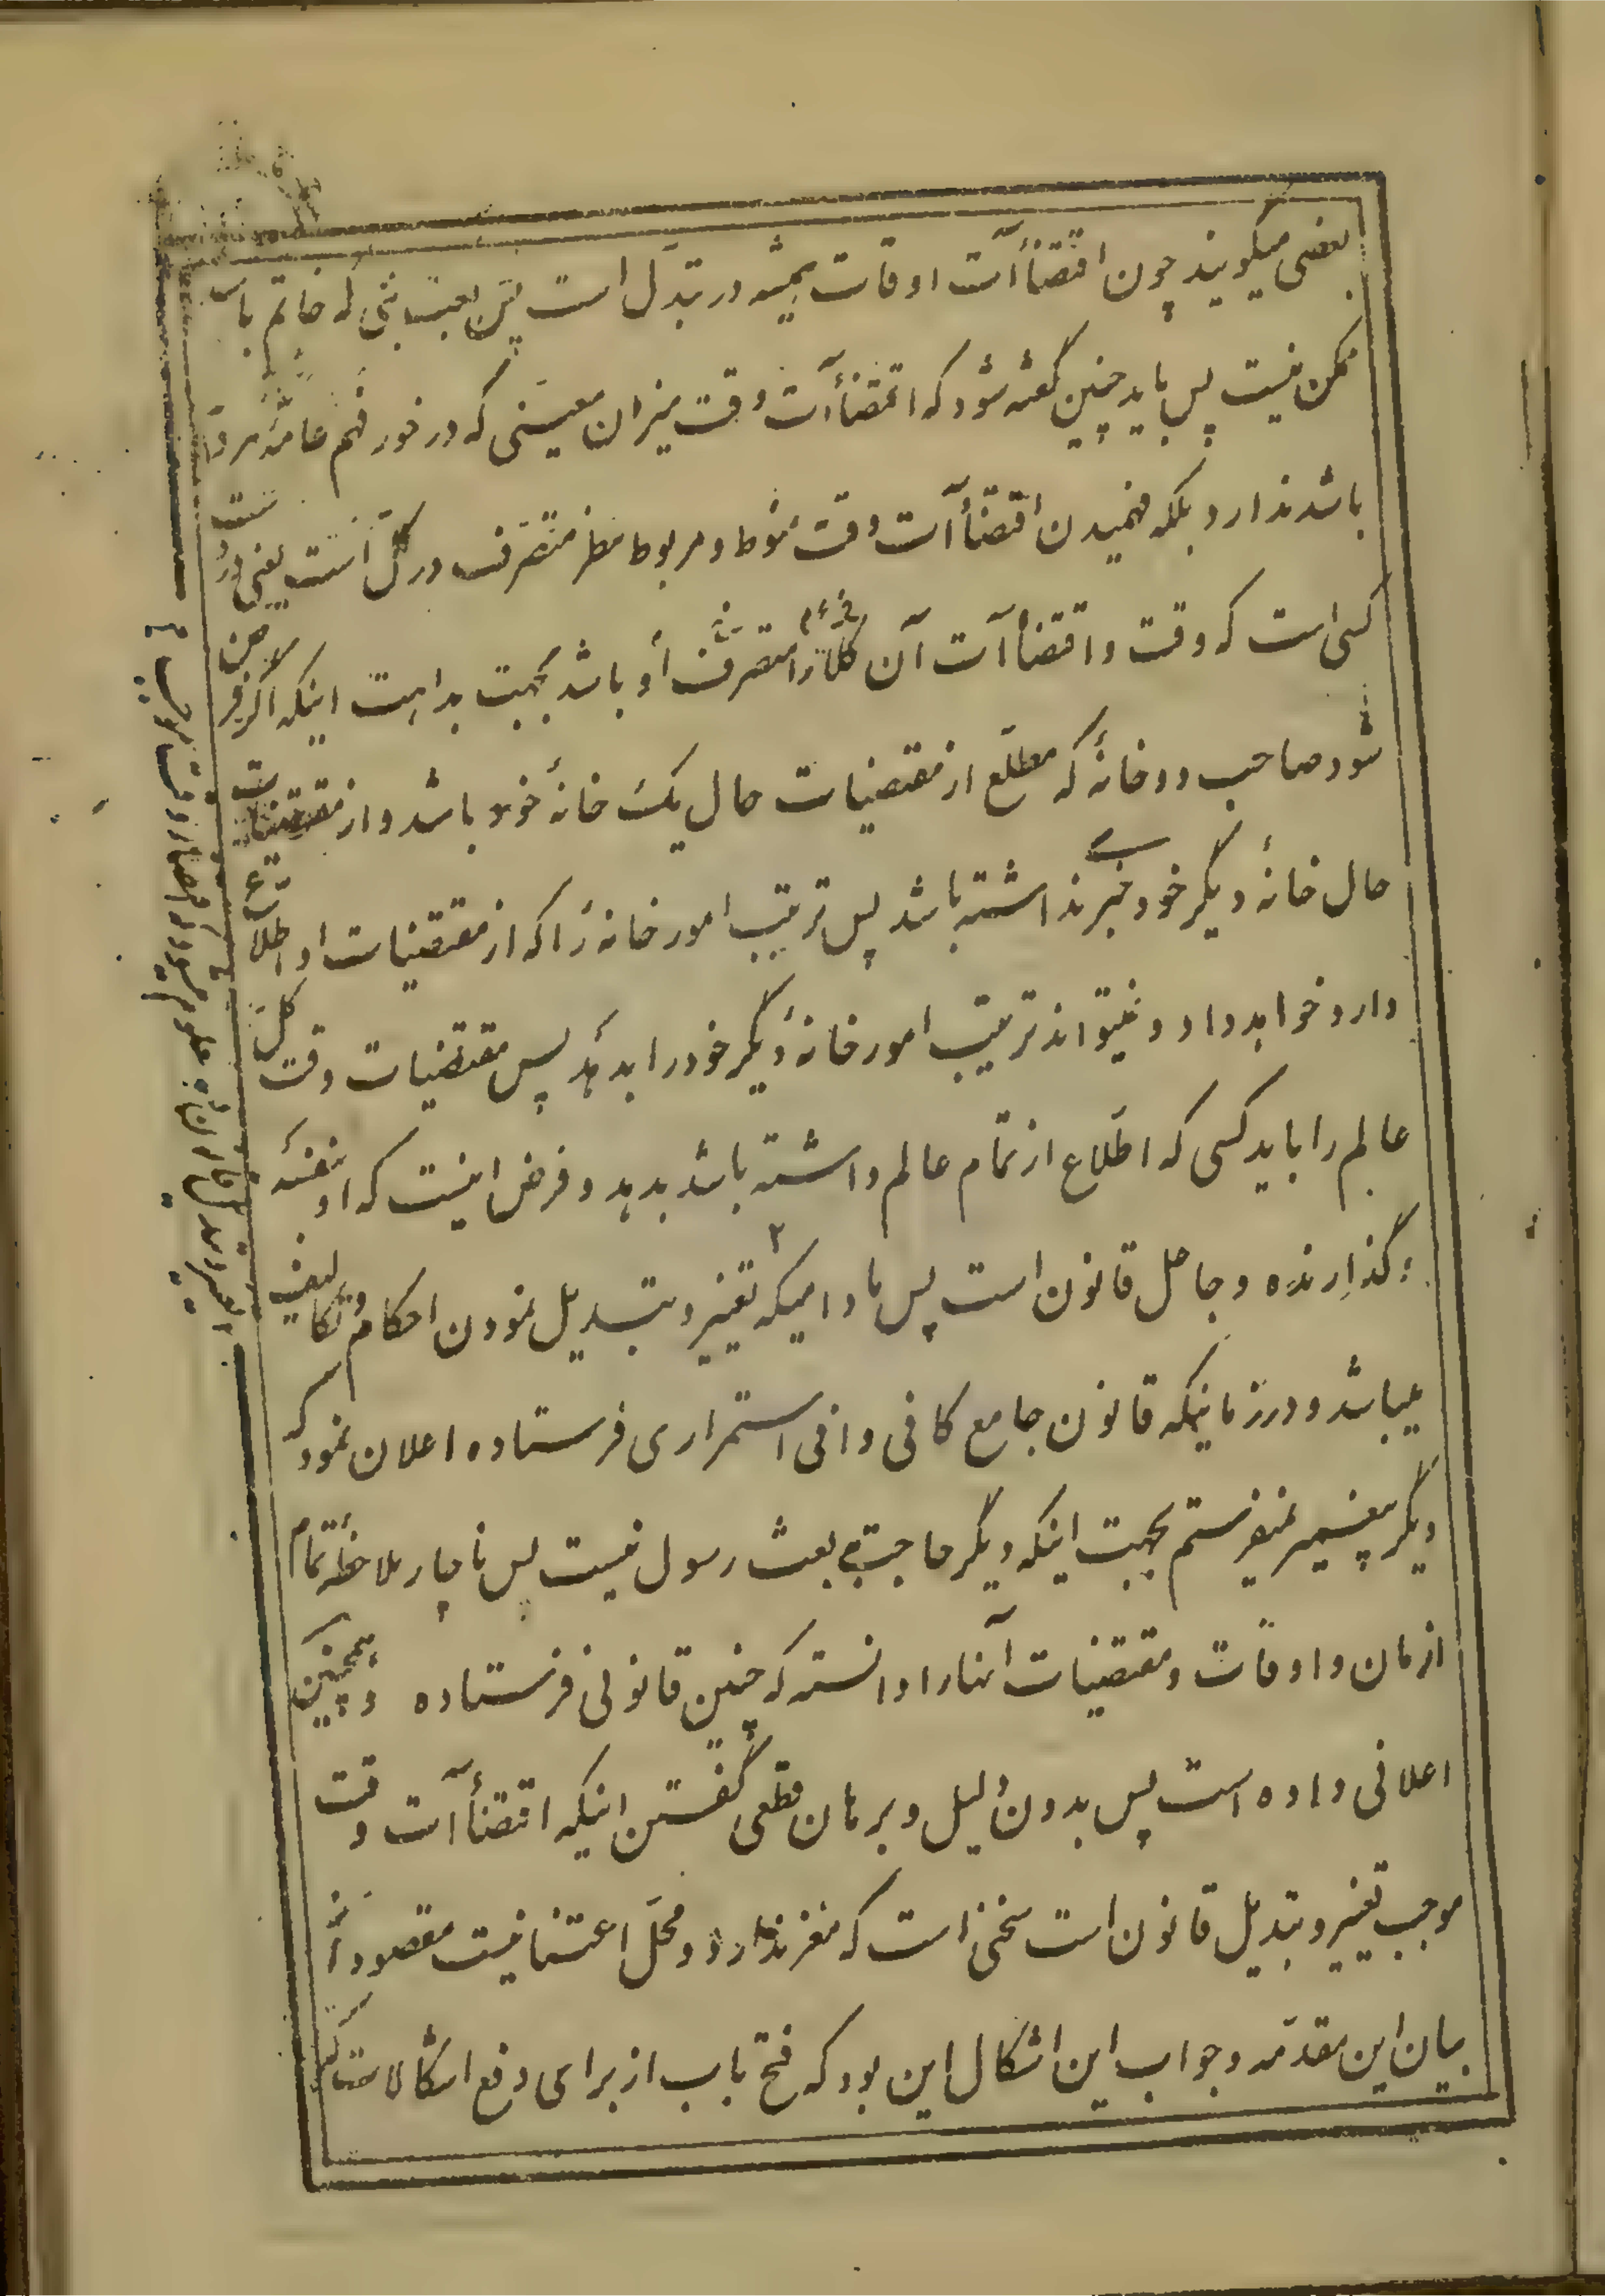 بعضی میگویند چون اقتضاآت اوقات همیشه در تبدّل است پس بعثت نبی که خاتم باشد
ممکن نیست پس باید چنین گفته شود که اقتضاآت وقت میزان معینی که در خور فهم عامّه مردم
باشد ندارد بلکه فهمیدن اقتضاآت وقت منوط و مربوط بنظر متصرف در کلّ است یعنی در دست
کسی است که وقت و اقتضاآت آن کلّا را متصرف او باشد بجهت بداهت اینکه اگر فرض
شود صاحب دو خانهٔ که مطلع از مقتضیات حال یک خانهٔ خود باشد و از مقتضیات
حال خانهٔ دیگر خود خبری نداشته باشد پس ترتیب امور خانه را که از مقتضیات او اطلاع
دارد خواهد داد و نمیتواند ترتیب امور خانهٔ دیگر خود را بدهد پس مقتضیات وقت کل
عالم را باید کسی که اطلاع از تمام عالم داشته باشد بدهد و فرض اینست که او بنفسه
گذارنده و جاعل قانون است پس مادامیکه تغییر و تبدیل نمودن احکام و تکالیف
میباشد و در زمانیکه قانون جامع کافی وافی استمراری فرستاده اعلان نمود که
دیگر پیغمبر نمیفرستم بجهت اینکه دیگر حاجت به بعث رسول نیست پس ناچار ملاحظهٔ تمام
ازمان و اوقات و مقتضیات آنها را دانسته که چنین قانونی فرستاده و همچنین
اعلانی داده است پس بدون دلیل و برهان قطعی گفتن اینکه اقتضاآت وقت
موجب تغییر و تبدیل قانون است سخنی است که مغز ندارد و محلّ اعتنا نیست مقصود از
بیان این مقدّمه و جواب این اشکال این بود که فتح باب از برای دفع اشکالات